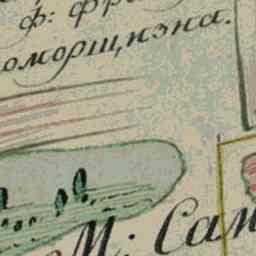 ф: фр
оморщизна.
М: Сам